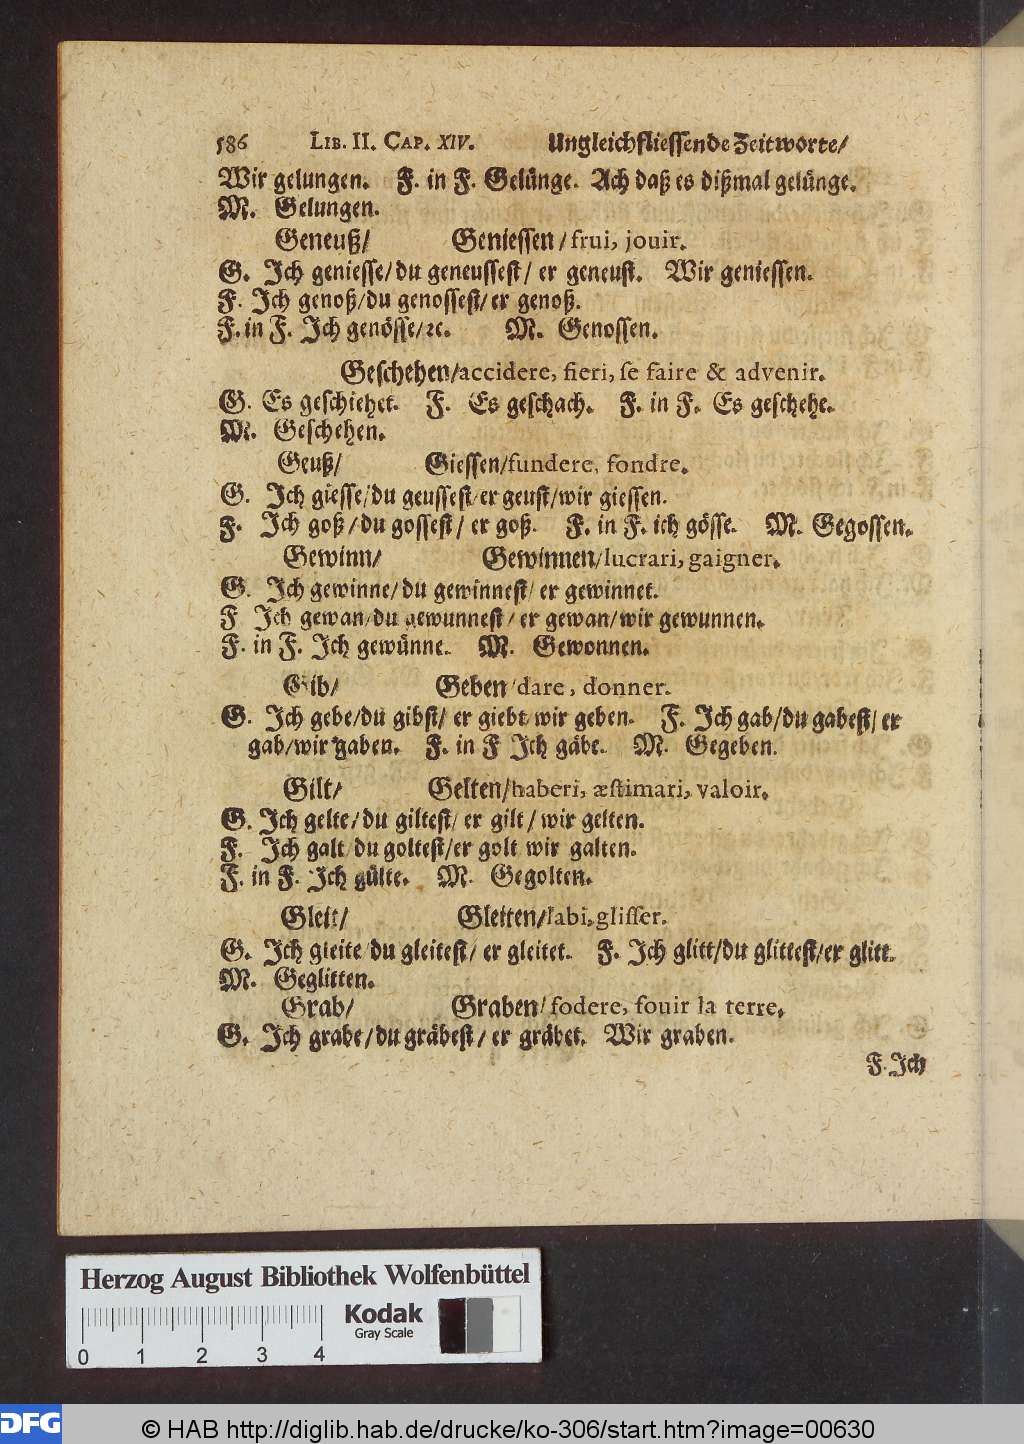 586 Lib. II. Cap. XIV. Ungleichfliessende Zeitworte/
Wir gelungen. F. in F. Gelünge. Ach daß es dißmal gelünge.
M. Gelungen.
Geneuß/ Geniessen / frui, jouir.
G. Ich geniesse/ du geneussest/ er geneust. Wir geniessen.
F. Ich genoß/ du genossest/ er genoß.
F. in F. Ich genösse/ ꝛc. M. Genossen.
Geschehen/ accidere, fieri, se faire & advenir.
G. Es geschiehet. F. Es geschach. F. in F. Es geschehe.
M. Geschehen.
Geuß/ Giessen/ fundere, fondre.
G. Ich giesse/ du geussest/ er geust/ wir giessen.
F. Ich goß / du gossest / er goß. F. in F. ich gösse. M. Gegossen.
Gewinn/ Gewinnen/ lucrari, gaigner.
G. Ich gewinne/ du gewinnest/ er gewinnet.
F Ich gewan/ du gewunnest / er gewan/ wir gewunnen.
F. in F. Ich gewünne. M. Gewonnen.
Gib/ Geben / dare, donner.
G. Ich gebe/ du gibst/ er giebt/ wir geben. F. Ich gab/ du gabest/ er
gab/ wir gaben. F. in F Ich gäbe. M. Gegeben.
Gilt/ Gelten/ haberi, æstimari, valoir.
G. Ich gelte/ du giltest/ er gilt / wir gelten.
F. Ich galt/ du goltest/ er golt wir galten.
F. in F. Ich gülte. M. Gegolten.
Gleit/ Gleiten/ labi, glisser.
G. Ich gleite/ du gleitest/ er gleitet. F. Ich glitt/ du glittest/ er glitt.
M. Geglitten.
Grab/ Graben/ fodere, fouir la terre.
G. Ich grabe/ du gräbest/ er gräbet. Wir graben.
F. Ich
Herzog August Bibliothek Wolfenbüttel
Kodak
Gray Scale
0 1 2 3 4
DFG
© HAB http://diglib.hab.de/drucke/ko-306/start.htm?image=00630